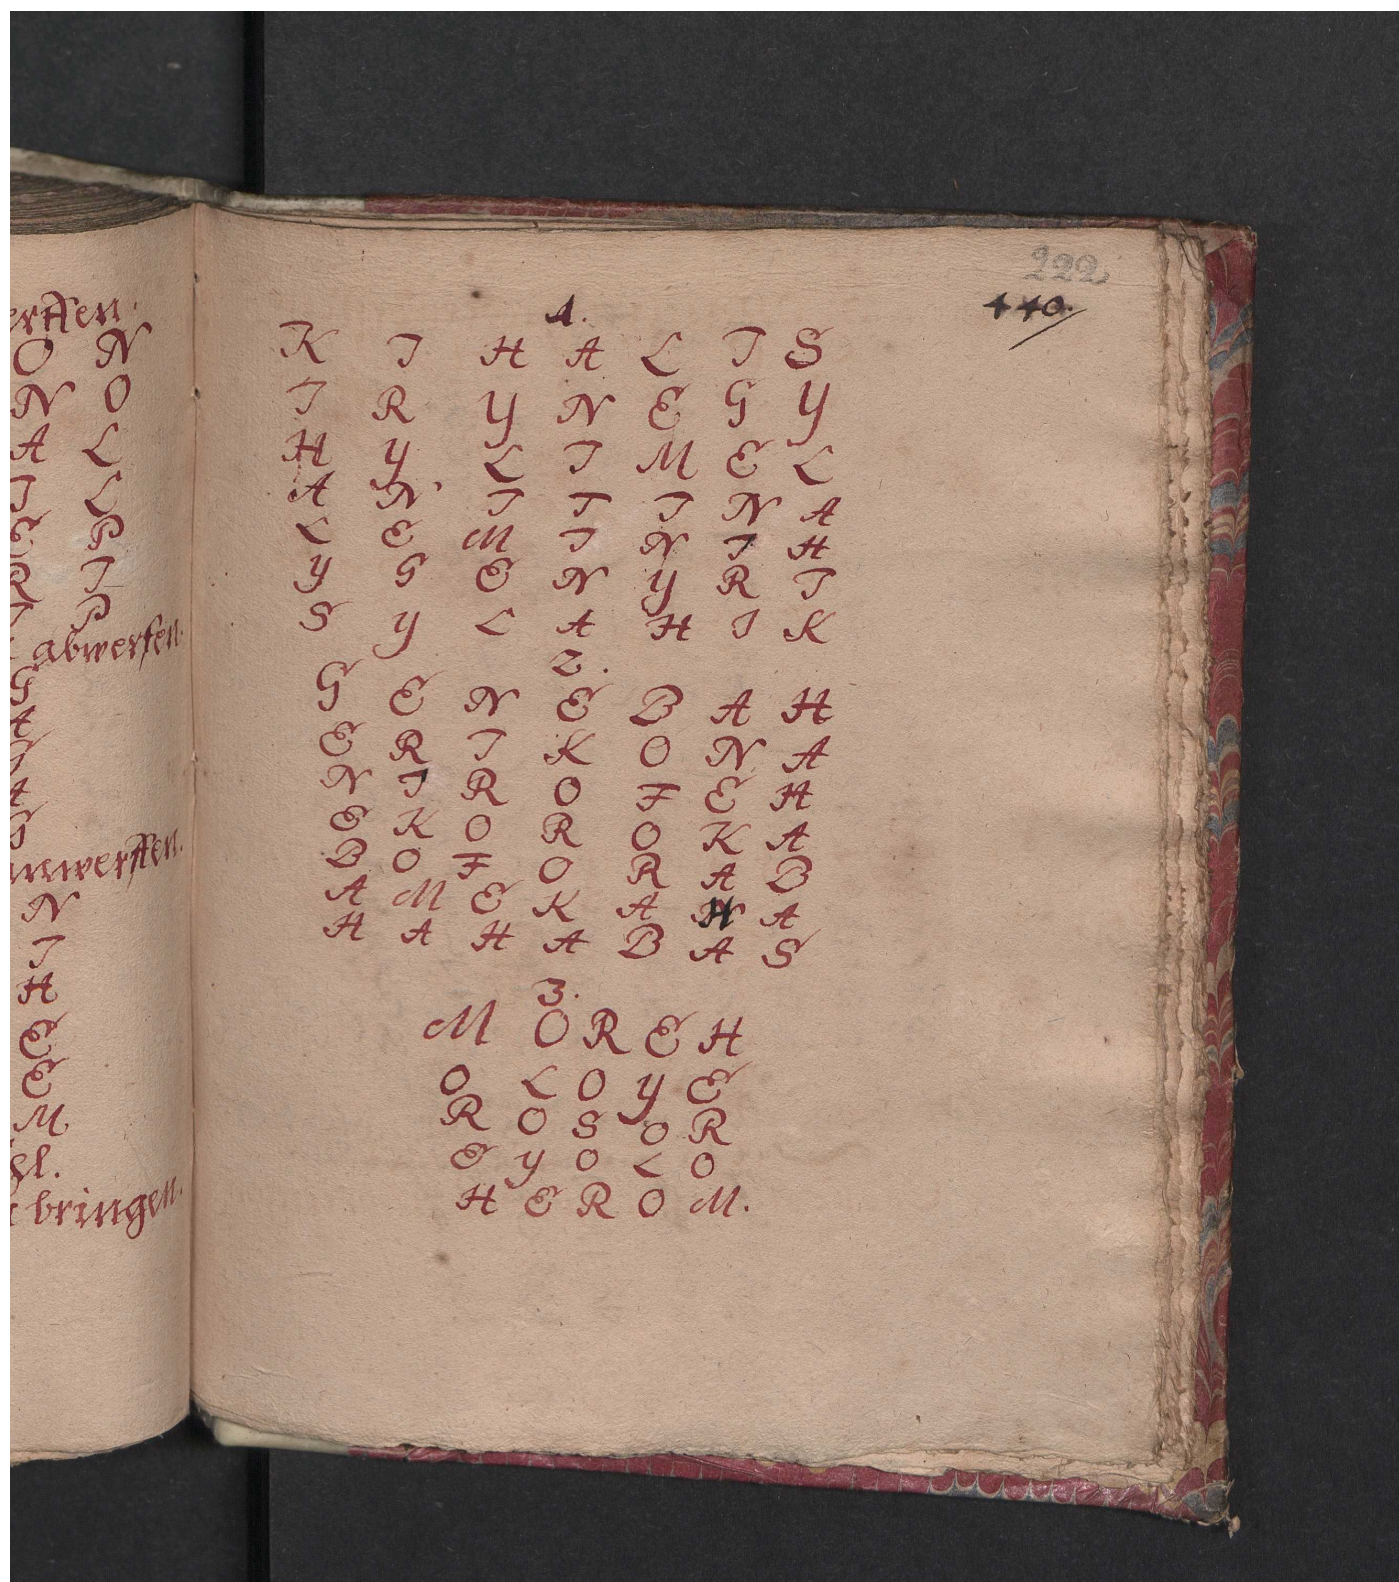 erffen.
O N
N O
A L
I L
E P
R I
P
abwerfen.
G
A
G
A
G
anwerffen.
N
I
H
E
E
M
gl.
bringen.
222
440.
1.
K I H A L I S
I R Y N E G Y
H Y L I M E L
A N I T I N A
L E M I N I H
Y G E N Y R I
S Y L A H I K
2.
G E N E B A H
E R I K O N A
N I R O F E H
E K O R O K A
B O F O R A B
A M E K A H A
H A H A B A S
3.
M O R E H
O L O Y E
R O S O R
E Y O L O
H E R O M.